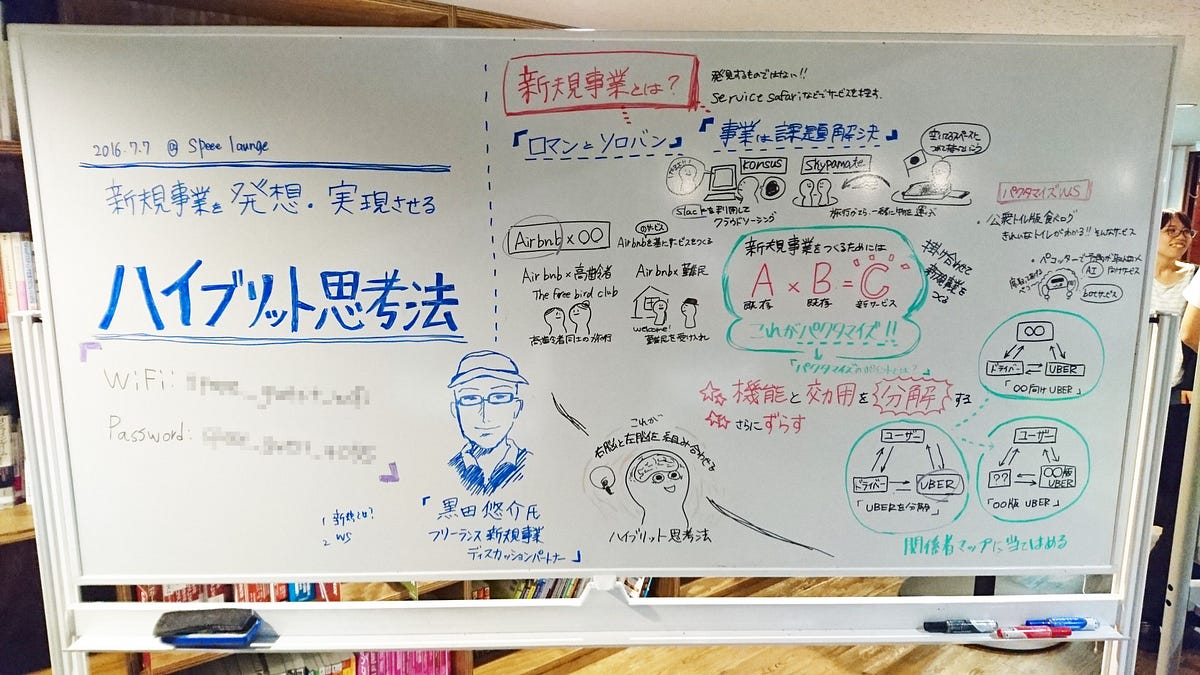 2016.7.7 @ Speee lounge
新規事業を発想・実現させる
ハイブリット思考法
WiFi:
Password:
1 新規とは?
2 WS
「黒田悠介氏
フリーランス新規事業
ディスカッションパートナー」
新規事業とは?
発見するものではない!!
Service safariなどでサービスを探す。
『ロマンとソロバン』
『事業は課題解決』
konsus
Skypamate
Slackを利用して
クラウドソーシング
旅行がてら、一緒に物を運ぶ
Airbnb×〇〇
のサービス
Airbnbを基にサービスをつくる
Airbnb×高齢者
The free bird club
高齢者同士の旅行
Airbnb×難民
welcome!
難民を受け入れ
新規事業をつくるためには
A × B = C
既存 既存 新サービス
これがパクタマイズ!!
掛け合わせて
新規事業を
つくる
「パクタマイズのポイントとは?」
機能と効用を分解する
さらにずらす
これが
右脳と左脳を組み合わせる
ハイブリット思考法
パクタマイズWS
・公衆トイレ版食べログ
きれいなトイレがわかる!!そんなサービス
AI
botサービス
〇〇
ドライバー
UBER
「〇〇向けUBER」
ユーザー
ドライバー
UBER
「UBERを分解」
ユーザー
??
〇〇版
UBER
「〇〇版 UBER」
関係者マップに当てはめる